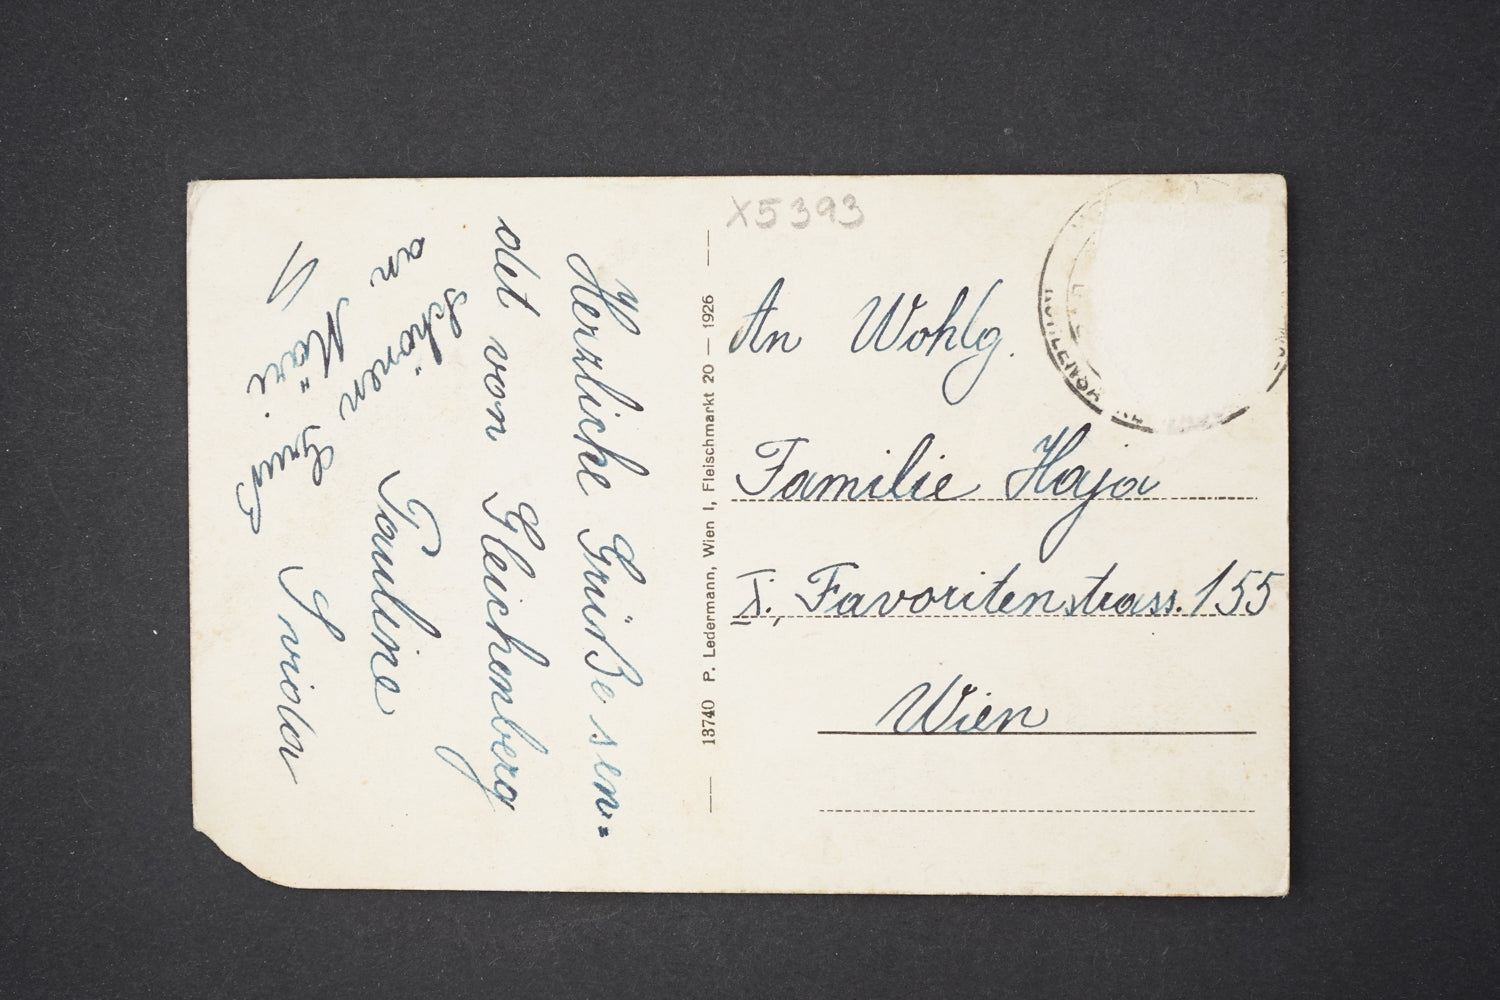 X5393
An Wohlg.
Familie Haja
X., Favoritenstrass. 155
Wien
13740 P. Ledermann, Wien I, Fleischmarkt 20 — 1926
Herzliche Grüße sen=
det von Gleichenberg
Pauline
Svida
Schönen Gruß
an Märi